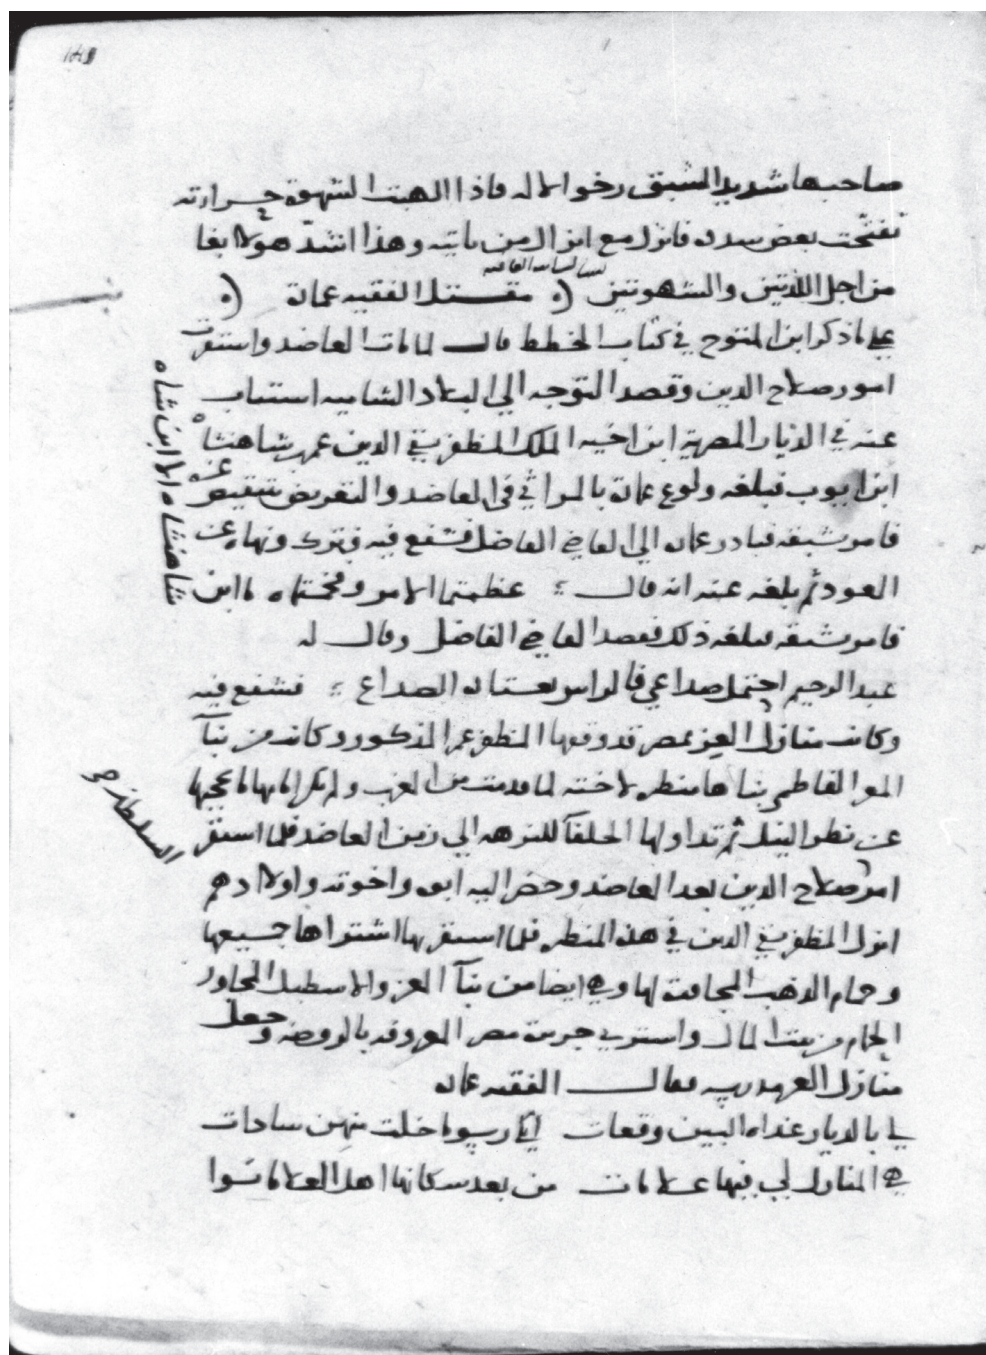 صاحبها شديد الشبق رخو الاله فاذا الهبت الشهوة حرارته
تفتحت بعض سدده فانزل مع انزال من ياتيه وهذا اشد هولا بغا
من اجل اللذتين والشهوتين مقتل الفقيه عمارة
على ما ذكر ابن المتوج في كتاب الخطط قال لما مات العاضد واستقرت
امور صلاح الدين وقصد التوجه الى البلاد الشاميه استناب
عنه في الديار المصرية ابن اخيه الملك المظفر تقي الدين عمر بن شاهنشاه
ابن ايوب فبلغه ولوع عمارة بالمراثي في العاضد والتعريض بتنقيص
فامر بشنقه فبادر عماره الى القاضي الفاضل فشفع فيه فترك ونهاه عن
العود ثم بلغه عنه انه قال عظمتما الامر وفخمتماه ما ابن
شاهنشاه الا ابن شاه
فامر بشنقه فبلغه ذلك فقصد القاضي الفاضل وقال له
عبد الرحيم احتمل صداعي فالراس يعتاده الصداع فشفع فيه
وكانت منازل العز بمصر قد وقفها المظفر عمر المذكور وكانت من بنآ
المعز الفاطمي بناها منظره لاخته لما قدمت من الغرب ولم يكن امامها ما يحجبها
عن نظر النيل ثم تداولها الخلفآ للنزهه الى زمن العاضد فلما استقر
السلطان
امر صلاح الدين بعد العاضد وحضر اليه ابوه واخوته واولادهم
انزل المظفر تقي الدين في هذه المنظره فلما استقر بها اشتراها جميعها
وحمام الذهب المجاورة لها وهي ايضا من بنآ العز والاسطبل المجاور
الحمام من بيت المال واشترى جزيرة مصر المعروفه بالروضه وجعل
منازل العز مدرسه فقال الفقيه عماره
يا بالديار غداه البين وقعات اثار سوء خلت منهن سادات
هي المنازل لي فيها علامات من بعد سكانها اهل العلا ماتوا